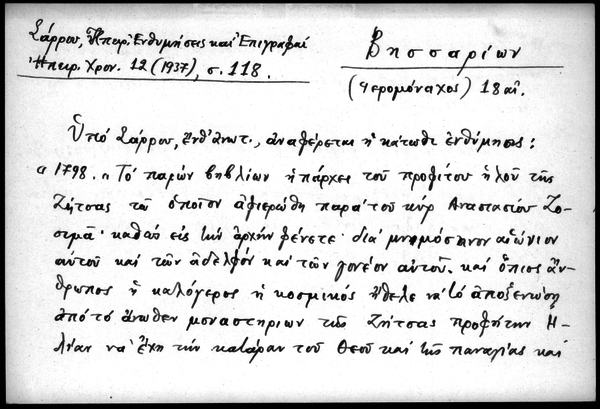 Σάρρου, Ἠπειρ. Ἐνθυμήσεις καὶ Ἐπιγραφαί
Ἠπειρ. Χρον. 12 (1937), σ. 118.
Βησσαρίων
(ἱερομόναχος) 18 αἰ.
Ὑπό Σάρρου, ἔνθ' ἀνωτ., ἀναφέρεται ἡ κάτωθι ἐνθύμησις:
« 1798. » Τό παρών βηβλίων ἠπάρχει τοῦ προφίτου ἠλοῦ τῆς
Ζήτσας τῶ ὁποῖον ἀφιερώθη παρά τοῦ κύρ Αναστασίου Ζο-
σιμᾶ· καθώς εἰς τήν ἀρχήν φένετε· διά μνημόσηνον αἰώνιον
αὐτοῦ καί τῶν ἀδελφόν καί τῶν γονέον αὐτοῦ. καί ὅπιος ἄν-
θρωπος ἤ καλόγερος ἤ κοσμικός ἤθελε νά τό ἀποξενώση
ἀπό τό ἄνωθεν μοναστηριων τῆς Ζήτσας προφήτην Ἠ-
λίαν νά ἔχη τήν κατάραν τοῦ Θεοῦ καί τῆς παναγίας καί